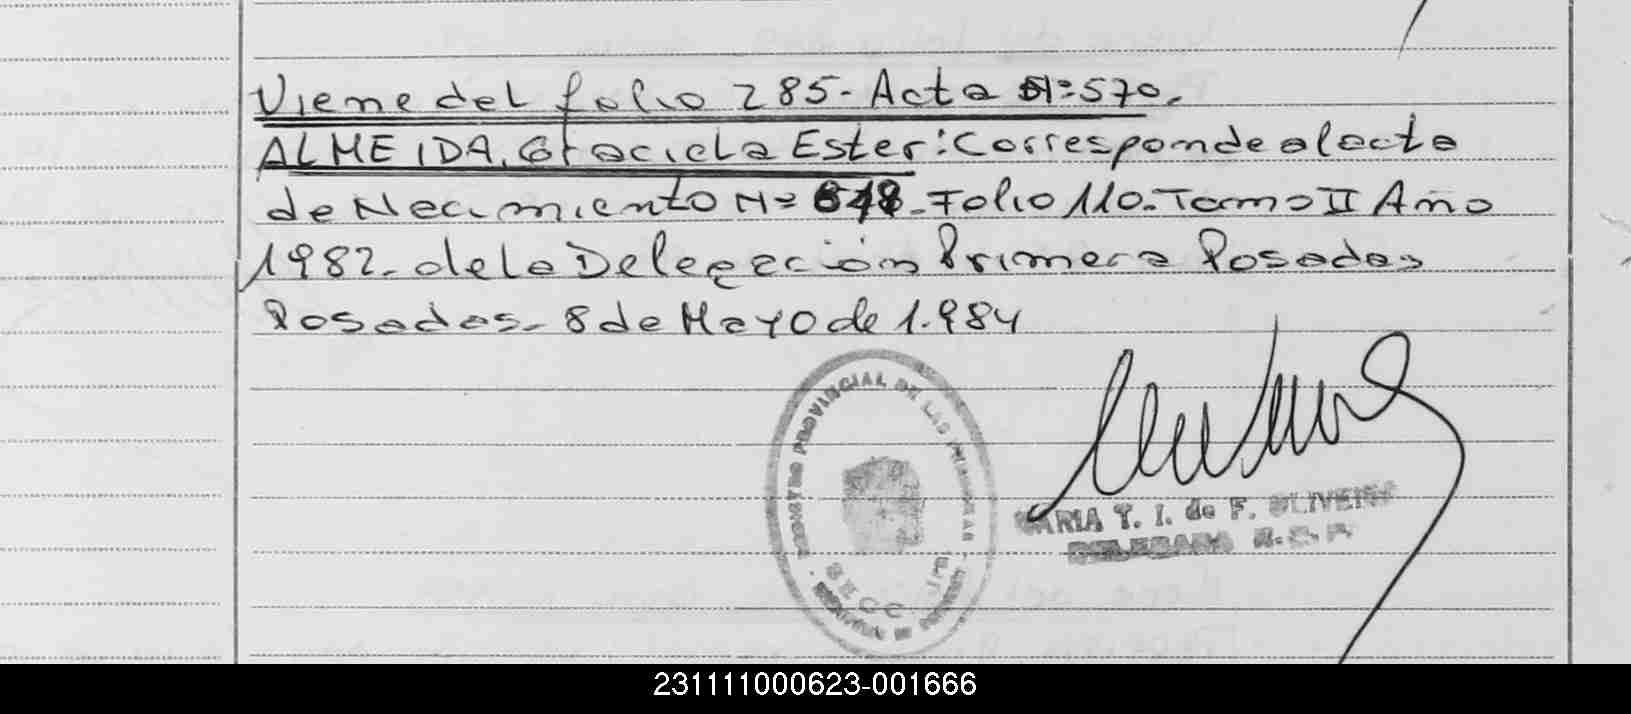 Viene del folio 285- Acta Nº 570.
ALMEIDA, Graciela Ester: Corresponde al acta
de Nacimiento Nº 648. Folio 110. Tomo II Año
1982. de la Delegación Primera Posadas
Posadas- 8 de Mayo de 1.984
REGISTRO PROVINCIAL DE LAS PERSONAS
SECC.
MARIA T. I. de F. OLIVEIRA
DELEGADA R. C. P.
231111000623-001666